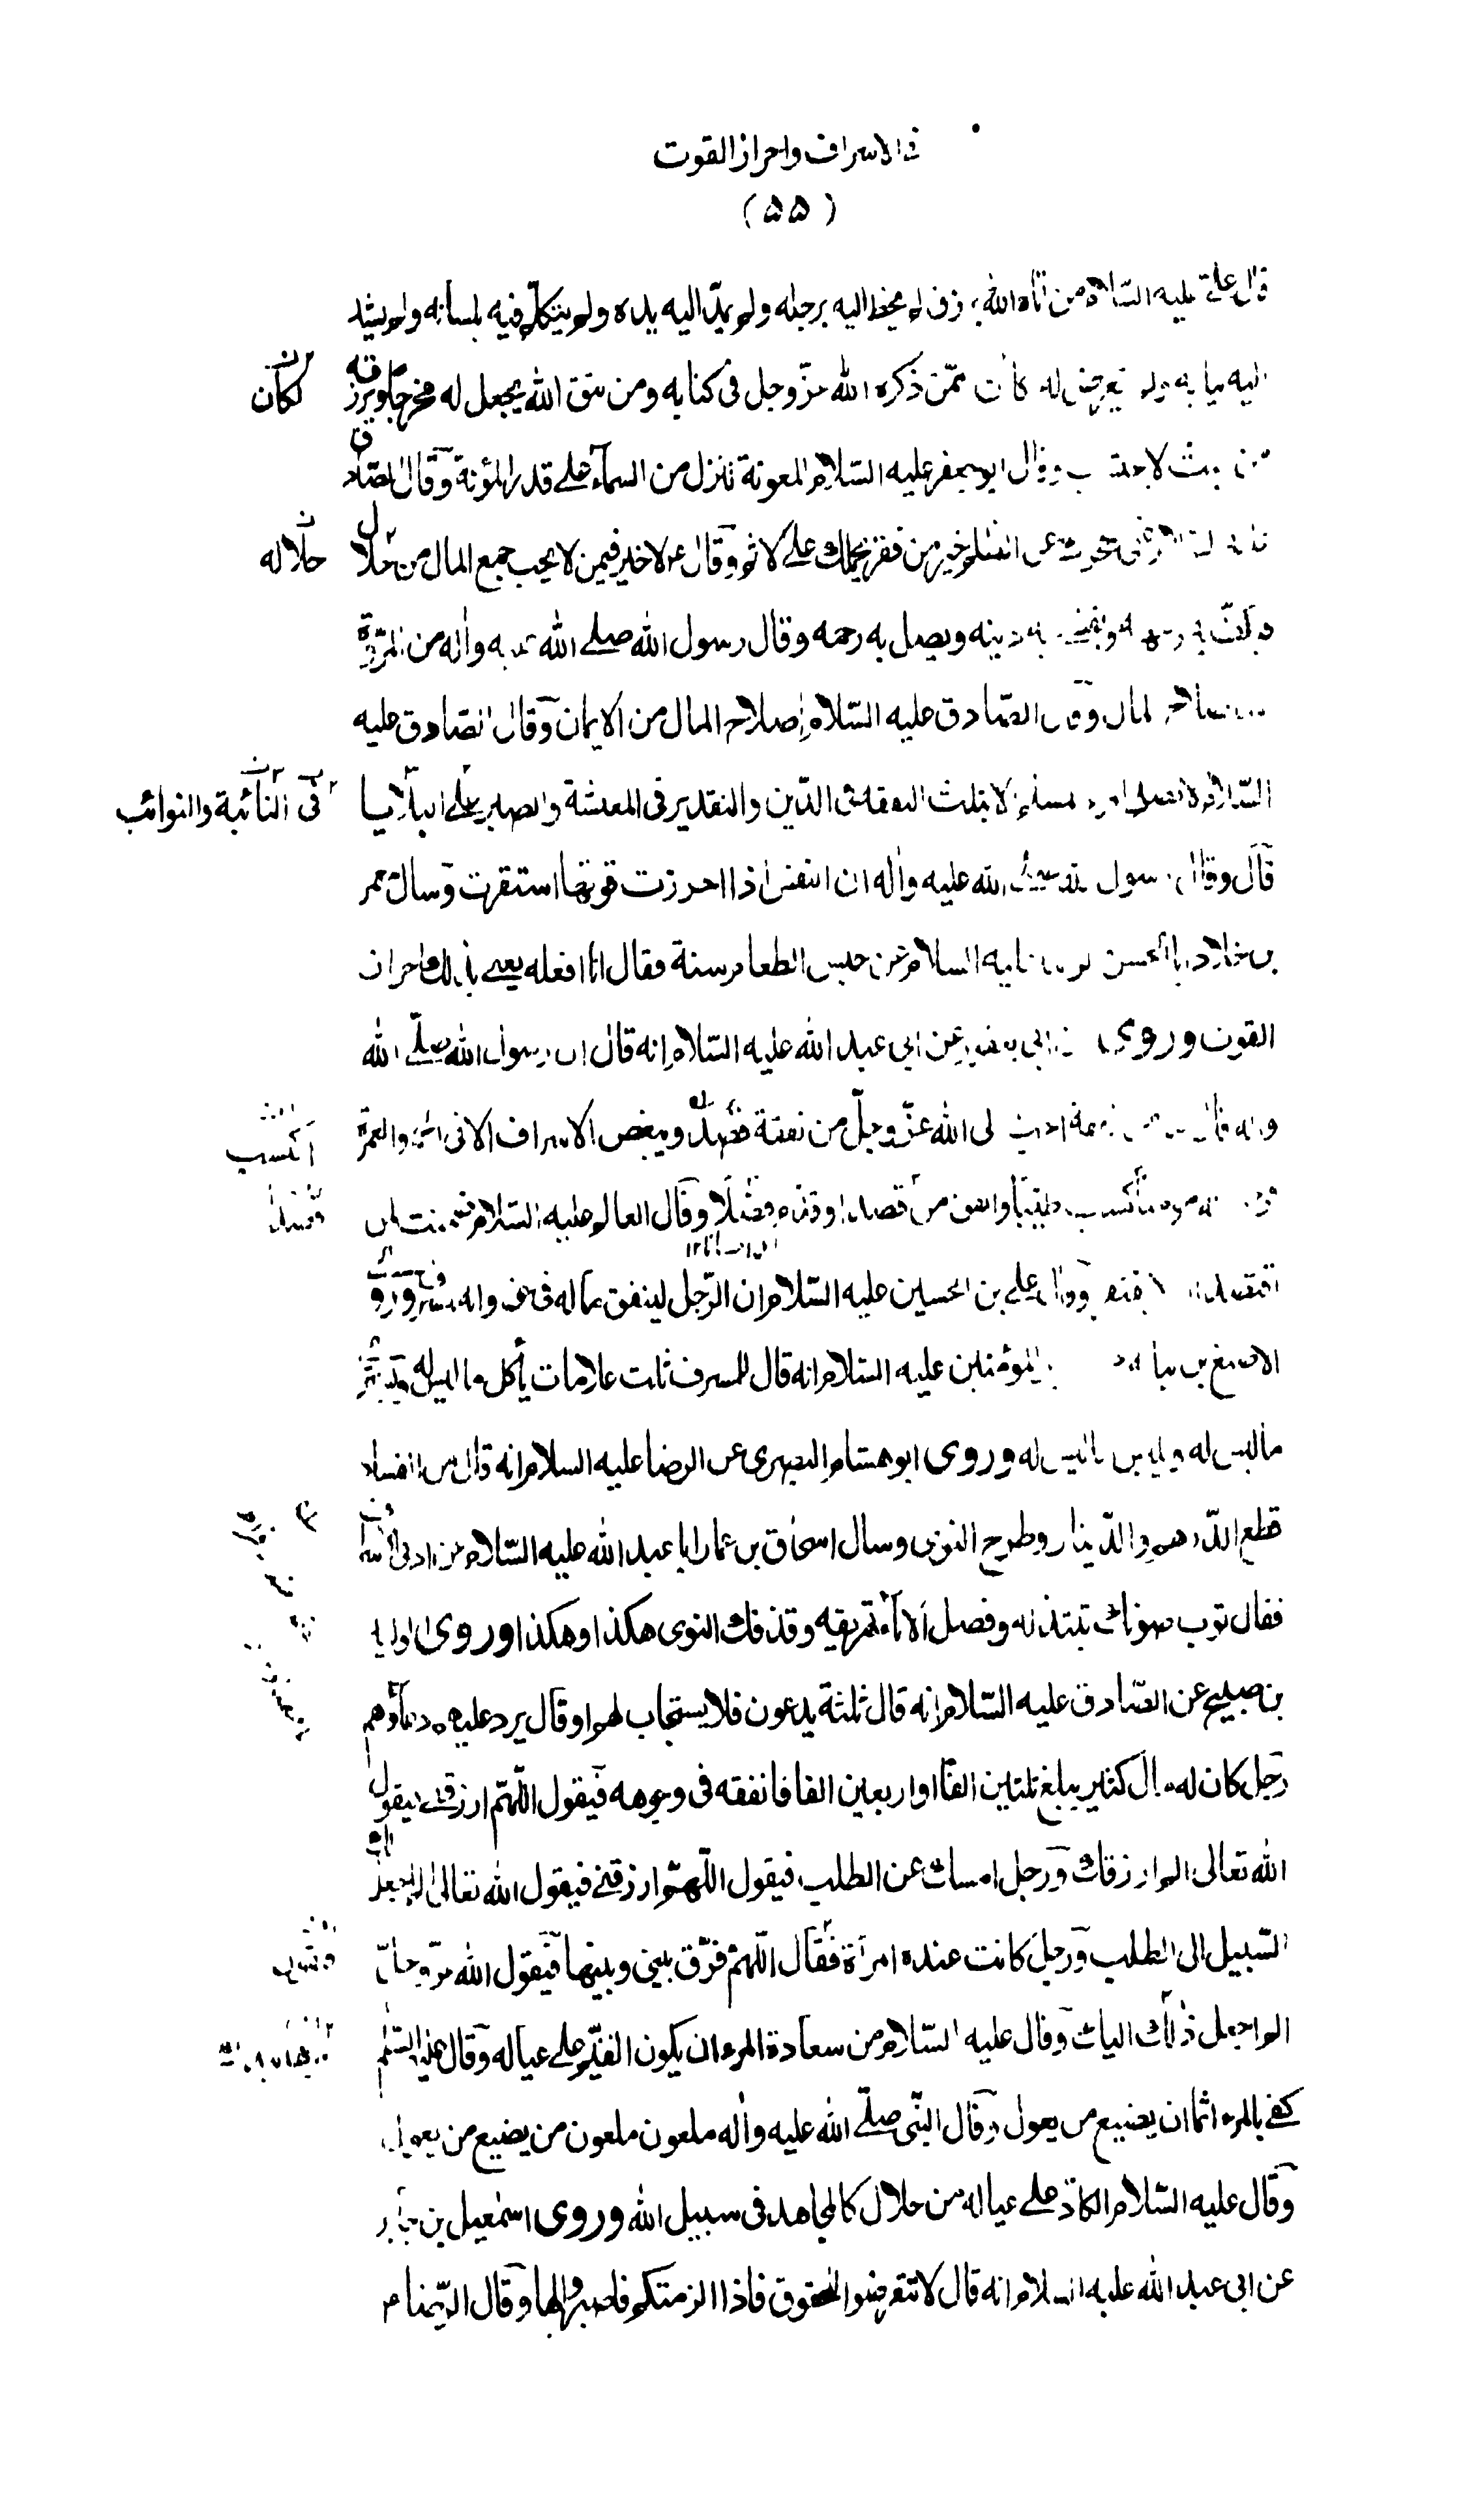 في الاسراف واحراز القوت
(٥٥)
قال علي عليه السلام من اتاه الله برزق لم يخط اليه برجله ولم يمدّ اليه يده ولم يتكلّم فيه بلسانه ولم يشد
اليه ثيابه ولم يتعرض له كان ممّن ذكره الله عزّ وجل في كتابه ومن يتق الله يجعل له مخرجا ويرزقه
لكان
من حيث لا يحتسب وقال ابو جعفر عليه السلام المعونة تنزل من السمآء على قدر المؤنة وقال الصّادق
عن الظلم خير من فقر يحملك على الاثم وقال ع لا خير فيمن لا يحب جمع المال من حلال
حلاله
به وجهه ويقضي به دينه ويصل به رحمه وقال رسول الله صلى الله عليه واله من المروّة
المال وقال الصّادق عليه السّلام اصلاح المال من الايمان وقال الصّادق عليه
السّلام لا يصلح المرء المسلم الا بثلث التفقه في الدّين والتقدير في المعيشة والصبر على البلايا
في النائبة والنوائب
قال وقال رسول الله صلى الله عليه واله ان النفس اذا احرزت قوتها استقرت وسال معمر
بن خلاد ابا الحسن الرضا عليه السلام عن حبس الطعام سنة فقال انا افعله يعني بذلك احراز
القوت وروى ابن ابي يعفور عن ابي عبد الله عليه السّلام انه قال قال رسول الله صلّى الله
واله ما من نفقة احب الى الله عزّ وجلّ من نفقة قصد ويبغض الاسراف الا في الحج والعمرة
اكتسب
مؤمنا اكتسب طيّبا وانفق من قصد او قدّم فضلا وقال العالم عليه السّلام ضمنت لمن
اقتصد ان لا يفتقر وقال علي بن الحسين عليه السّلام ان الرّجل لينفق ماله في حق وانه لمسرف وروى
الاصبغ بن نباتة المؤمنين عليه السّلام انه قال للمسرف ثلث علامات يأكل ما ليس له ويشتري
ما ليس له ويلبس ما ليس له وروى ابو هشام البصري عن الرضا عليه السلام انه قال من الفساد
قطع الدّرهم والدّينار وطرح النوى وسال اسحاق بن عمار ابا عبد الله عليه السّلام عن ادنى الاسراف
فقال ثوب صونك تبتذله وفضل الاناء تهريقه وقذفك النوى هكذا وهكذا وروى الوليد
بن صبيح عن الصّادق عليه السّلام انه قال ثلثة يدعون فلا يستجاب لهم او قال يرد عليهم دعاؤهم
رجل كان له مال كثير يبلغ ثلثين الفا او اربعين الفا فانفقه في وجوهه فيقول اللّهمّ ارزقني فيقول
الله تعالى الم ارزقك ورجل امسك عن الطلب فيقول اللّهمّ ارزقني فيقول الله تعالى الم اجعل لك
السّبيل الى الطلب ورجل كانت عنده امرأة فقال اللّهمّ فرّق بيني وبينها فيقول الله عزّ وجلّ
الم اجعل ذلك اليك وقال عليه السّلام من سعادة المرء ان يكون القيّم على عياله وقال عليه السّلم
كفى بالمرء اثما ان يضيع من يعول وقال النّبي صلّى الله عليه واله ملعون ملعون من يضيع من يعول
وقال عليه السّلام الكادّ على عياله من حلال كالمجاهد في سبيل الله وروى اسمعيل بن جابر
عن ابي عبد الله عليه السلام انه قال لا تتعرضوا للحقوق فاذا الزمتكم فاصبروا لها وقال الرّضا ع